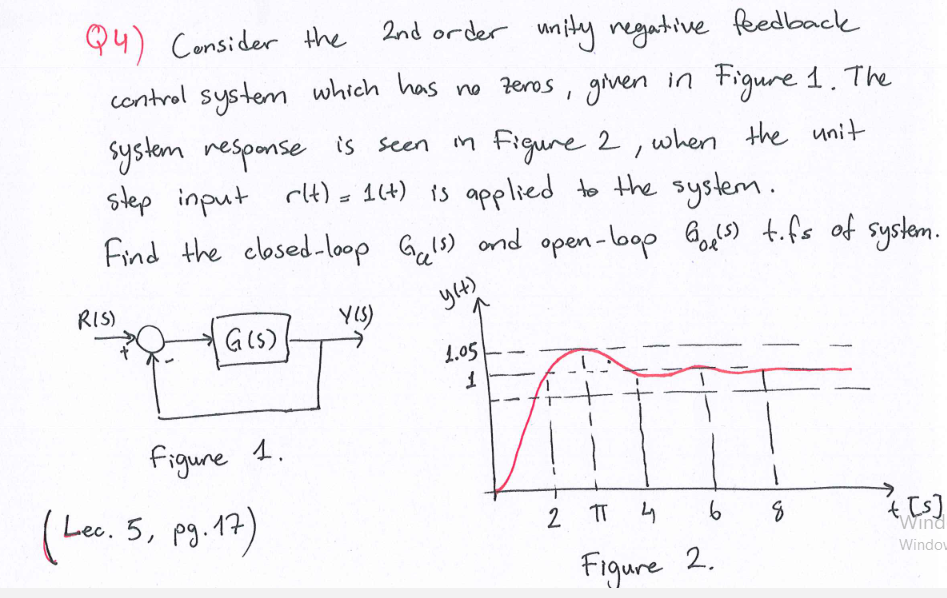 Q4) Consider the 2nd order unity negative feedback
control system which has no zeros, given in Figure 1. The
system response is seen in Figure 2, when the unit
step input r(t) = 1(t) is applied to the system.
Find the closed-loop Gcl(s) and open-loop Gol(s) t.fs of system.
R(s)
+
-
G(s)
Y(s)
Figure 1.
(Lec. 5, pg. 17)
y(t)
1.05
1
2 π 4 6 8
t [s]
Figure 2.
Wind
Window